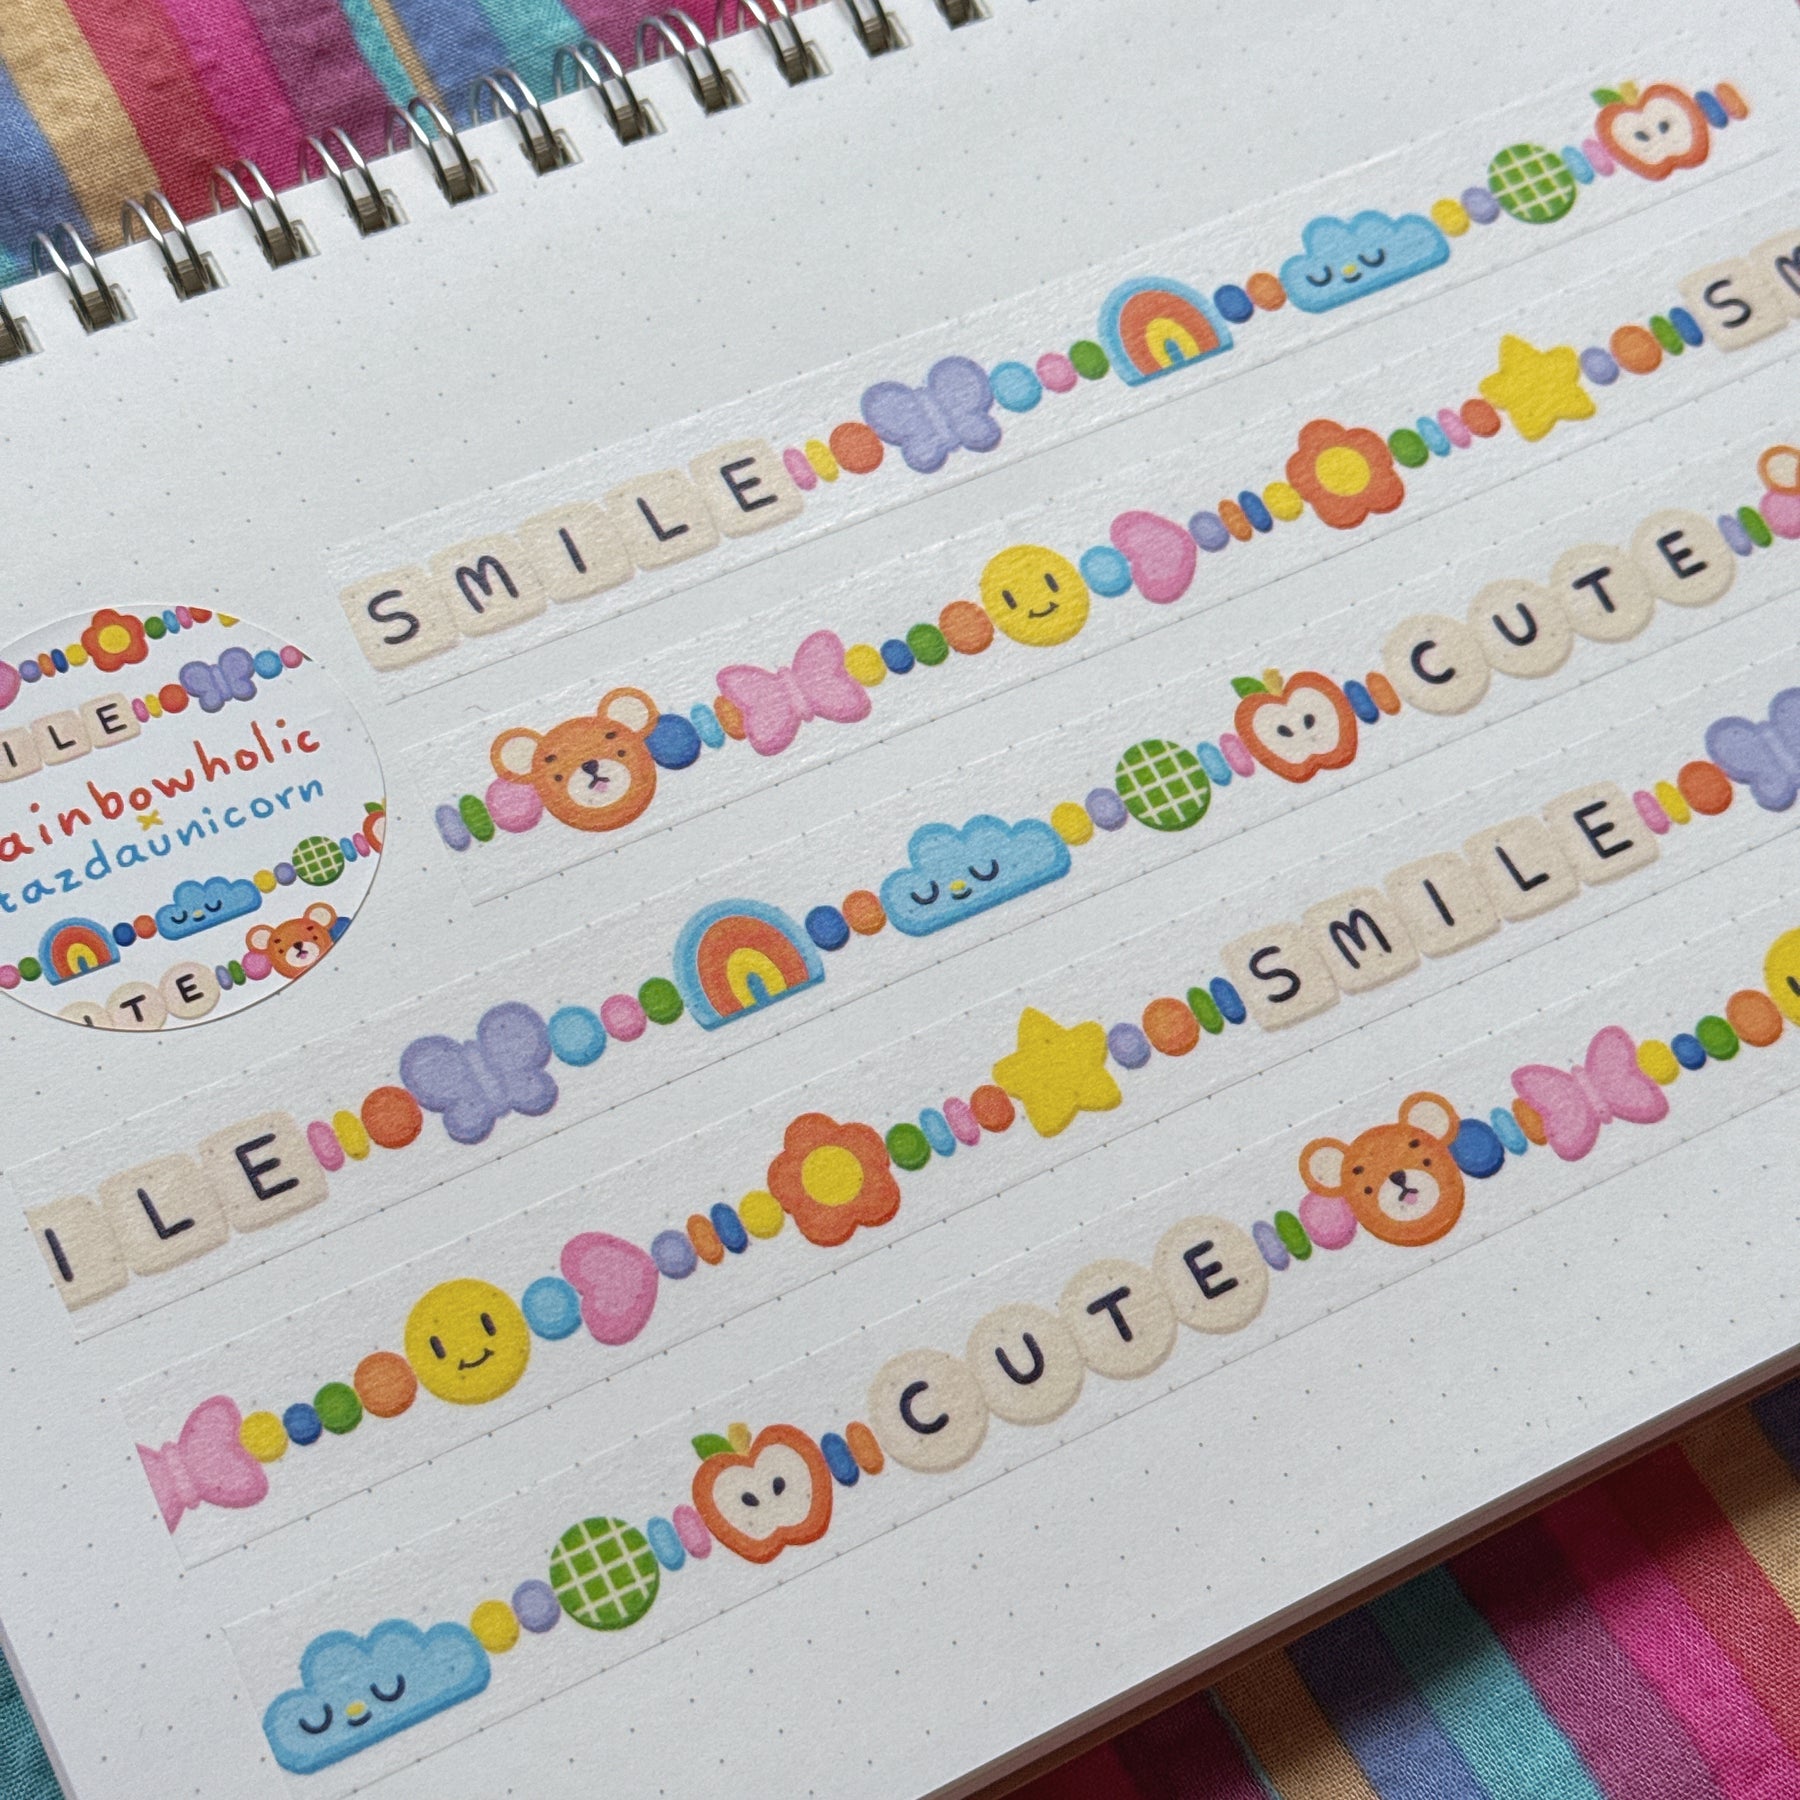 SMILE
SM
CUTE
ILE
SMILE
CUTE
ILE
ainbowholic
x
tazdaunicorn
UTE